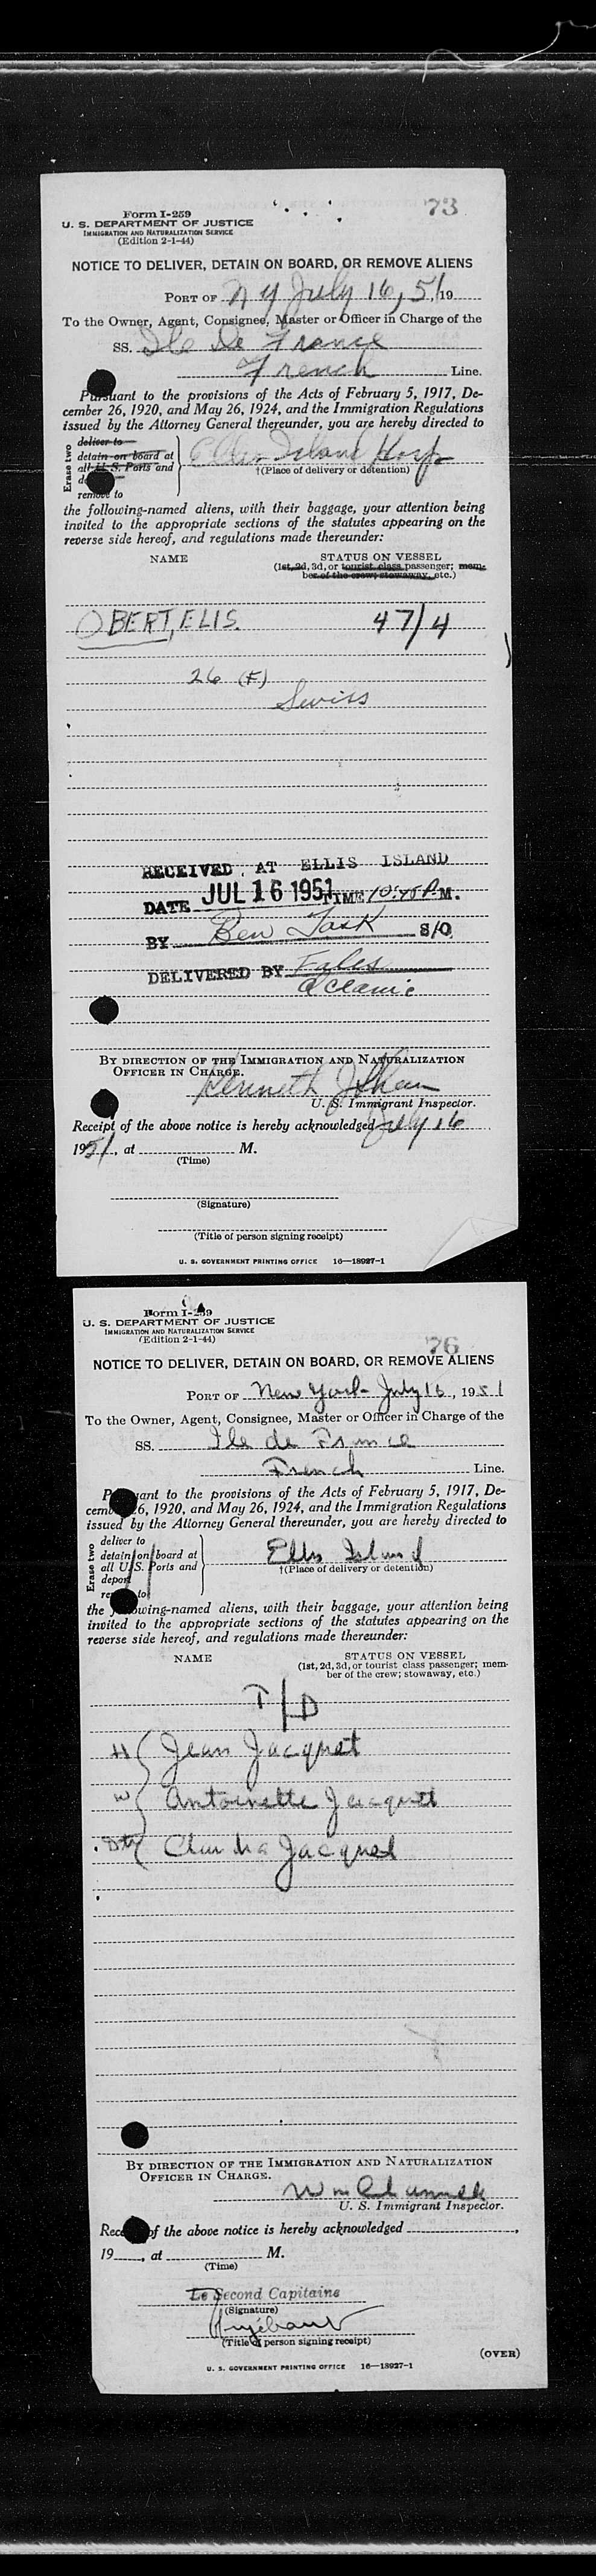 73
Form I-259
U. S. DEPARTMENT OF JUSTICE
IMMIGRATION AND NATURALIZATION SERVICE
(Edition 2-1-44)
NOTICE TO DELIVER, DETAIN ON BOARD, OR REMOVE ALIENS
PORT OF N Y July 16, 51 19
To the Owner, Agent, Consignee, Master or Officer in Charge of the
SS. Ile De France
French Line.
Pursuant to the provisions of the Acts of February 5, 1917, De-
cember 26, 1920, and May 26, 1924, and the Immigration Regulations
issued by the Attorney General thereunder, you are hereby directed to
Erase two
deliver to
detain on board at
all U. S. Ports and
remove to
Ellis Island Hosp
†(Place of delivery or detention)
the following-named aliens, with their baggage, your attention being
invited to the appropriate sections of the statutes appearing on the
reverse side hereof, and regulations made thereunder:
NAME STATUS ON VESSEL
(1st, 2d, 3d, or tourist class passenger; mem-
ber of the crew; stowaway, etc.)
OBERT, ELIS. 47/4
26 (F)
Swiss
RECEIVED AT ELLIS ISLAND
DATE JUL 16 1951 TIME 10:45 P.M.
BY Ben Task S/O
DELIVERED BY Fales
Oceanic
BY DIRECTION OF THE IMMIGRATION AND NATURALIZATION
OFFICER IN CHARGE.
Kenneth J Shea
U. S. Immigrant Inspector.
Receipt of the above notice is hereby acknowledged July 16
1951, at M.
(Time)
(Signature)
(Title of person signing receipt)
U. S. GOVERNMENT PRINTING OFFICE 16—18927-1
Form I-259
U. S. DEPARTMENT OF JUSTICE
IMMIGRATION AND NATURALIZATION SERVICE
(Edition 2-1-44)
76
NOTICE TO DELIVER, DETAIN ON BOARD, OR REMOVE ALIENS
PORT OF New York July 16, 1951
To the Owner, Agent, Consignee, Master or Officer in Charge of the
SS. Ile de France
French Line.
Pursuant to the provisions of the Acts of February 5, 1917, De-
cember 26, 1920, and May 26, 1924, and the Immigration Regulations
issued by the Attorney General thereunder, you are hereby directed to
Erase two
deliver to
detain on board at
all U. S. Ports and
deport
remove to
Ellis Island
†(Place of delivery or detention)
the following-named aliens, with their baggage, your attention being
invited to the appropriate sections of the statutes appearing on the
reverse side hereof, and regulations made thereunder:
NAME STATUS ON VESSEL
(1st, 2d, 3d, or tourist class passenger; mem-
ber of the crew; stowaway, etc.)
T/D
H Jean Jacquet
W Antoinette Jacquet
Dtr Jacquet
BY DIRECTION OF THE IMMIGRATION AND NATURALIZATION
OFFICER IN CHARGE.
Wm
U. S. Immigrant Inspector.
Receipt of the above notice is hereby acknowledged ,
19 , at M.
(Time)
Le Second Capitaine
(Signature)
(Title of person signing receipt)
(OVER)
U. S. GOVERNMENT PRINTING OFFICE 16—18927-1